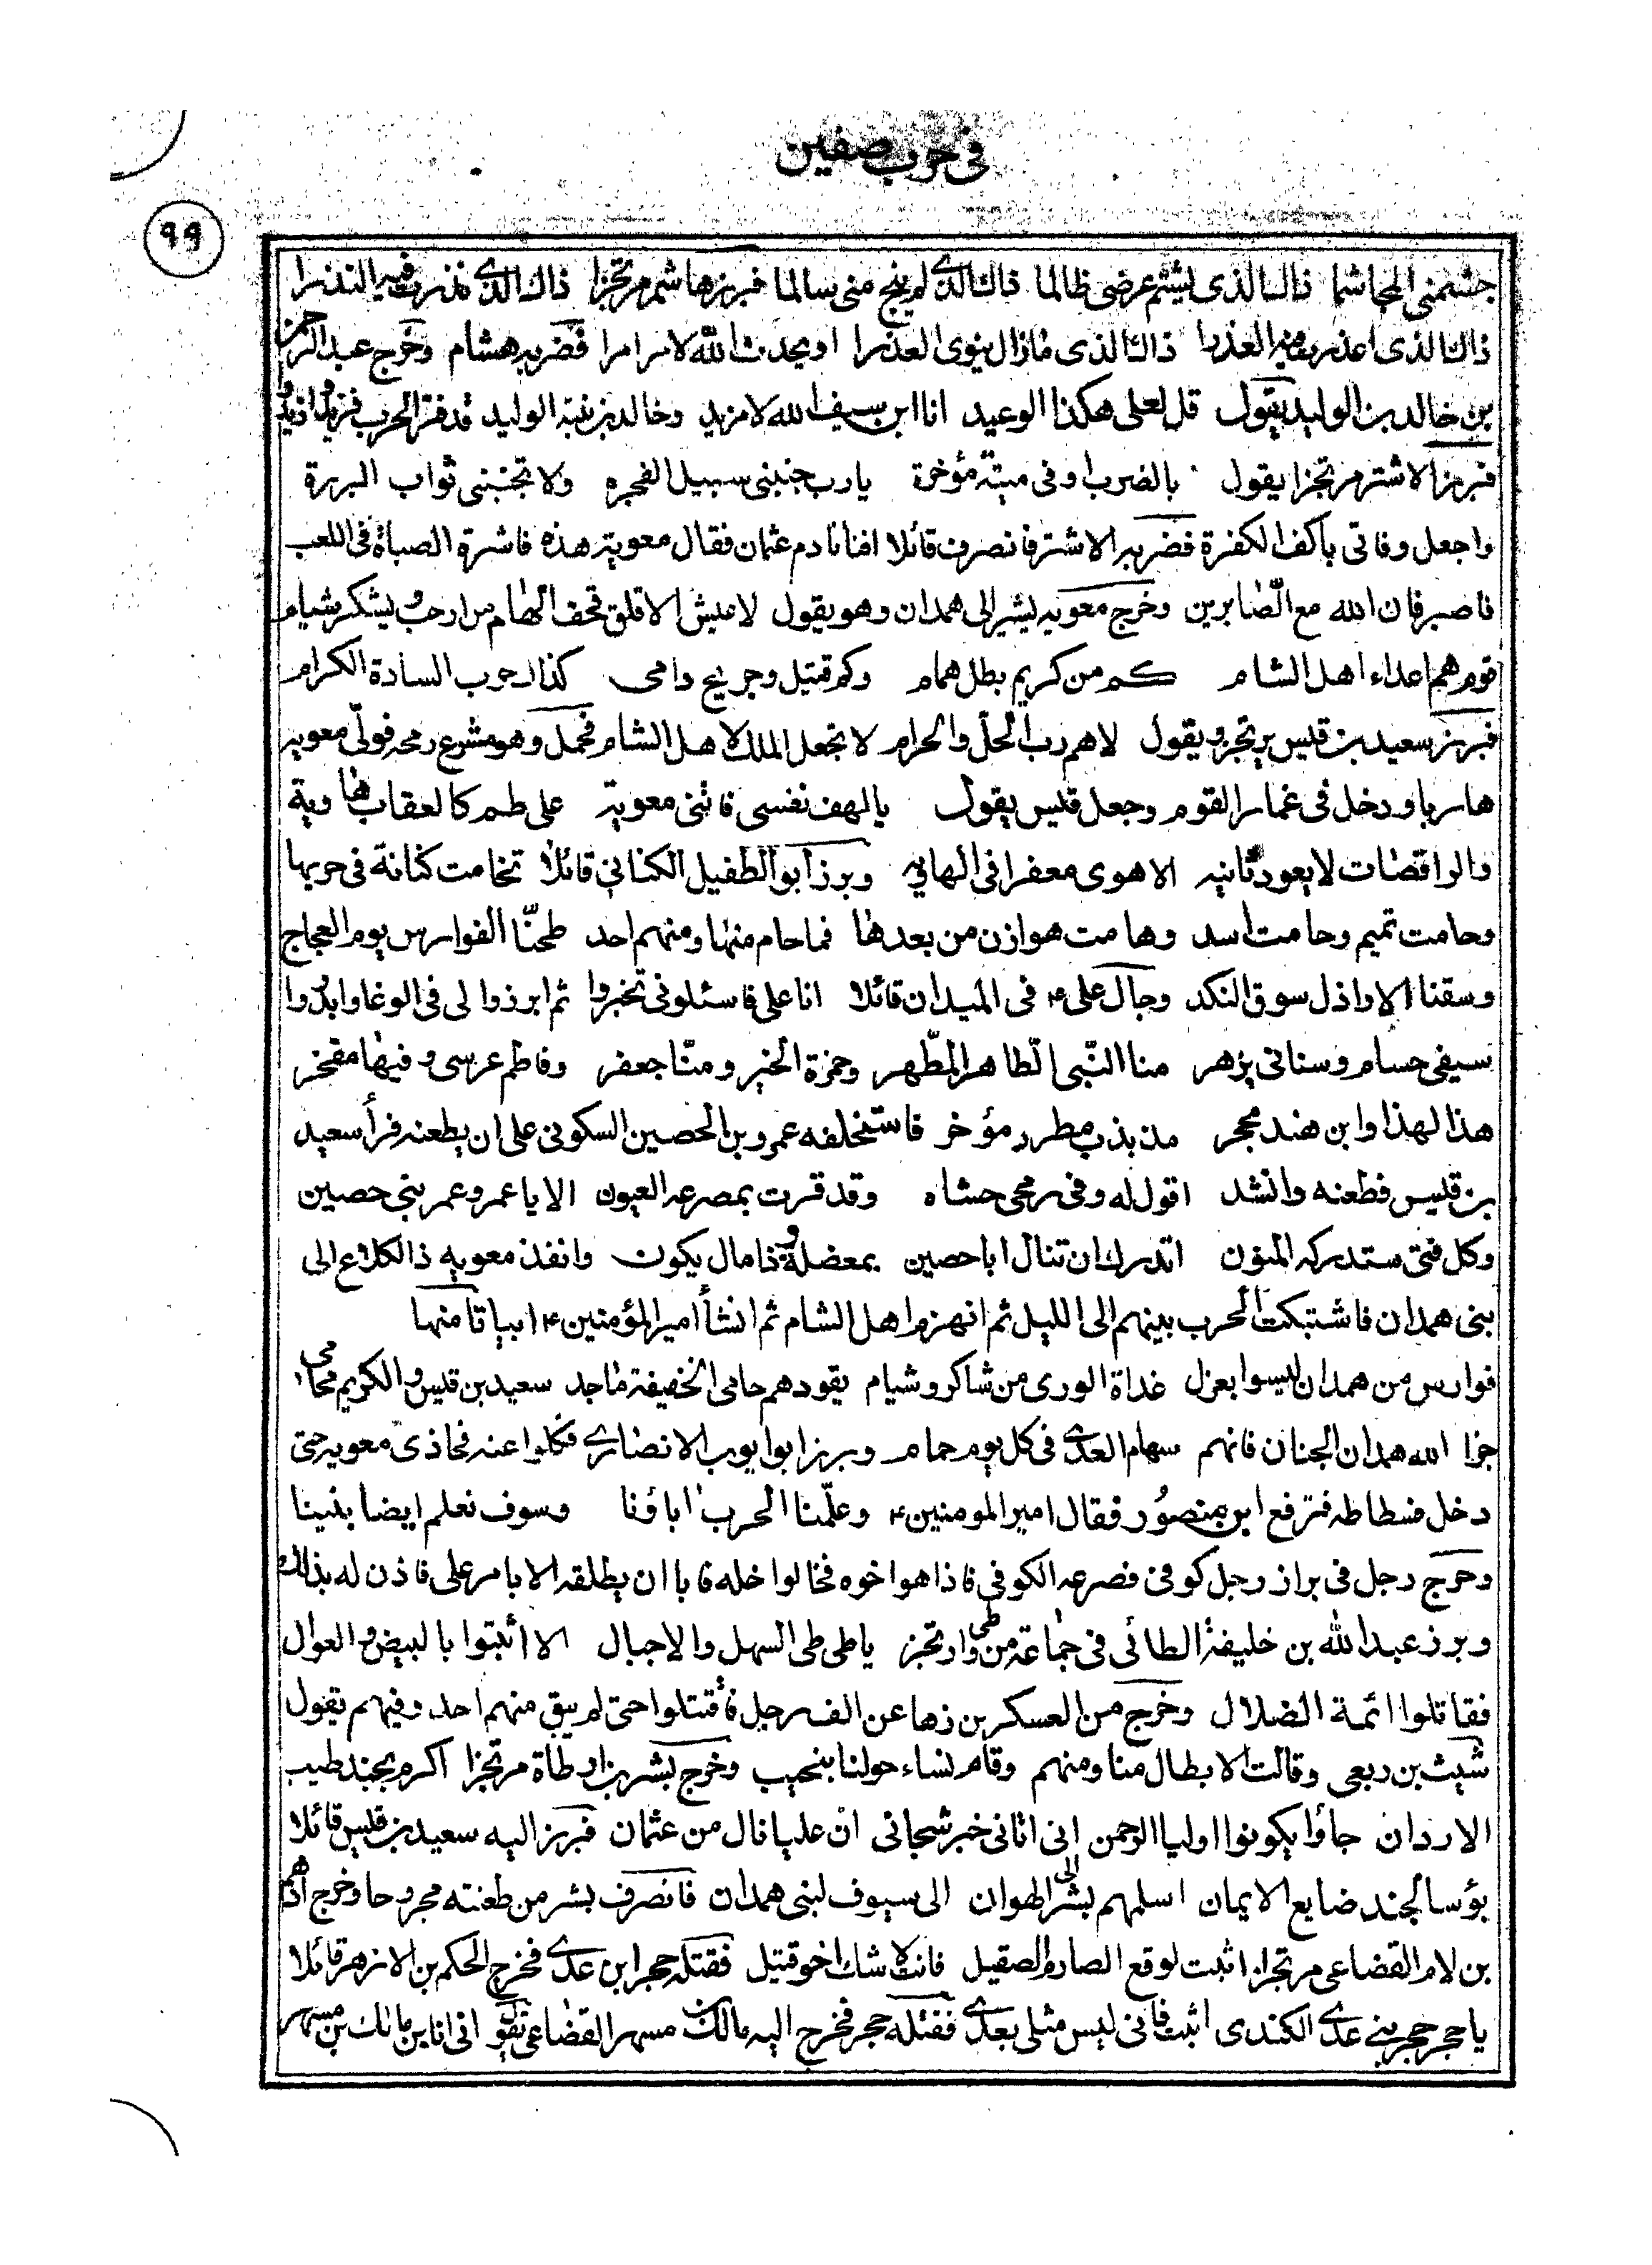 فى حرب صفين
٩٩
جشمنى المجاشما ذاك الذى يشتم عرضى ظالما ذاك الذى لم ينج منى سالما فبرز هاشم مرتجزا ذاك الذى نذرت فيه النذرا
ذاك الذى اعذرت فيه العذرا ذاك الذى مازال ينوى العذرا او يحدث الله لامر امرا فضربه هشام وخرج عبد الرحمن
بن خالد بن الوليد يقول قل لعلى هكذا الوعيد انا ابن سيف الله لا مزيد وخالد يزينه الوليد قد فتر الحرب فزيدوا زيدوا
فبرز الاشتر مرتجزا يقول بالضرب اوفى ميتة مؤخرة يا رب جنبنى سبيل الفجره ولا تجنبنى ثواب البررة
واجعل وفاتى باكف الكفرة فضربه الاشتر فانصرف قائلا افنانا دم عثمان فقال معوية هذه قاشرة الصباة فى اللعب
فاصبر فان الله مع الصابرين وخرج معويه يشير الى همدان وهو يقول لا عيش الا فلق قحف الهام من ارحب ويشكر شبام
قوم هم اعداء اهل الشام كم من كريم بطل همام وكم قتيل وجريح دامى كذاك حرب السادة الكرام
فبرز سعيد بن قيس يرتجز ويقول لاهم رب الحل والحرام لا تجعل الملك لاهل الشام فحمل وهو مشرع رمحه فولى معويه
هاربا ودخل فى غمار القوم وجعل قيس يقول يا لهف نفسى فاتنى معوية على طمر كالعقاب هاوية
والراقصات لا يعود ثانيه الا هوى معفرا فى الهاويه وبرز ابو الطفيل الكنانى قائلا تحامت كنانة فى حربها
وحامت تميم وحامت اسد وهامت هوازن من بعدها فما حام منها ومنهم احد طحنا الفوارس يوم العجاج
وسقنا الاراذل سوق النكد وجال على ع فى الميدان قائلا انا على فاسئلونى تخبروا ثم ابرزوا لى فى الوغا وابدروا
سيفى حسام وسنانى يزهر منا النبى الطاهر المطهر وحمزة الخير ومنا جعفر وفاطم عرسى وفيها مفخر
هذا لهذا وابن هند محجر مذبذب مطرد مؤخر فاستخلفه عمرو بن الحصين السكونى على ان يطعنه فرأ سعيد
بن قيس فطعنه وانشد اقول له وفى رمحى حشاه وقد قرت بمصرعه العيون الا يا عمرو عمر بنى حصين
وكل فتى ستدركه المنون اتدرك ان تنال ابا حصين بمعضلة وذا مال يكون وانفذ معويه ذا الكلاع الى
بنى همدان فاشتبكت الحرب بينهم الى الليل ثم انهزم اهل الشام ثم انشأ امير المؤمنين ع ابياتا منها
فوارس من همدان ليسوا بعزل غداة الورى من شاكر وشبام يقودهم حامى الخفيفة ماجد سعيد بن قيس والكريم محامى
جزا الله همدان الجنان فانهم سهام العدى فى كل يوم حمام وبرز ابو ايوب الانصارى فنكلوا عنه فحاذى معويه حتى
دخل فسطاطه فترفع ابن منصور فقال امير المومنين ع وعلمنا الحرب اباؤنا وسوف نعلم ايضا بنينا
وخرج رجل فى براز رجل كوفى فصرعه الكوفى فاذا هو اخوه فخالوا خله فابا ان يطلقه الا بامر على فاذن له بذلك
وبرز عبد الله بن خليفة الطائى فى جماعة من طى وارتجز يا طى طى السهل والاجبال الا اثبتوا بالبيض والعوال
فقاتلوا ائمة الضلال وخرج من العسكرين زها عن الف رجل فاقتتلوا حتى لم يبق منهم احد وفيهم يقول
شبث بن ربعى وقالت الابطال منا ومنهم وقام نساء حولنا بنحيب وخرج بشر بن ارطاة مرتجزا اكرم بجند طيب
الاردان جاؤا يكونوا اوليا الرحمن انى اتانى خبر شجانى ان عليا نال من عثمان فبرز اليه سعيد بن قيس قائلا
بؤسا لجند ضايع الايمان اسلمهم بشر الى الهوان الى سيوف لبنى همدان فانصرف بشر من طعنته مجروحا وخرج ادهم
بن لام القضاعى مرتجزا اثبت لوقع الصارم الصقيل فانت لا شك اخو قتيل فقتله حجر ابن عدى فخرج الحكم بن الازهر قائلا
يا حجر حجر بنى عدى الكندى اثبت فانى ليس مثلى بعدى فقتله حجر فخرج اليه مالك بن مسهر القضاعى يقول انى انا ابن مالك بن مسهر